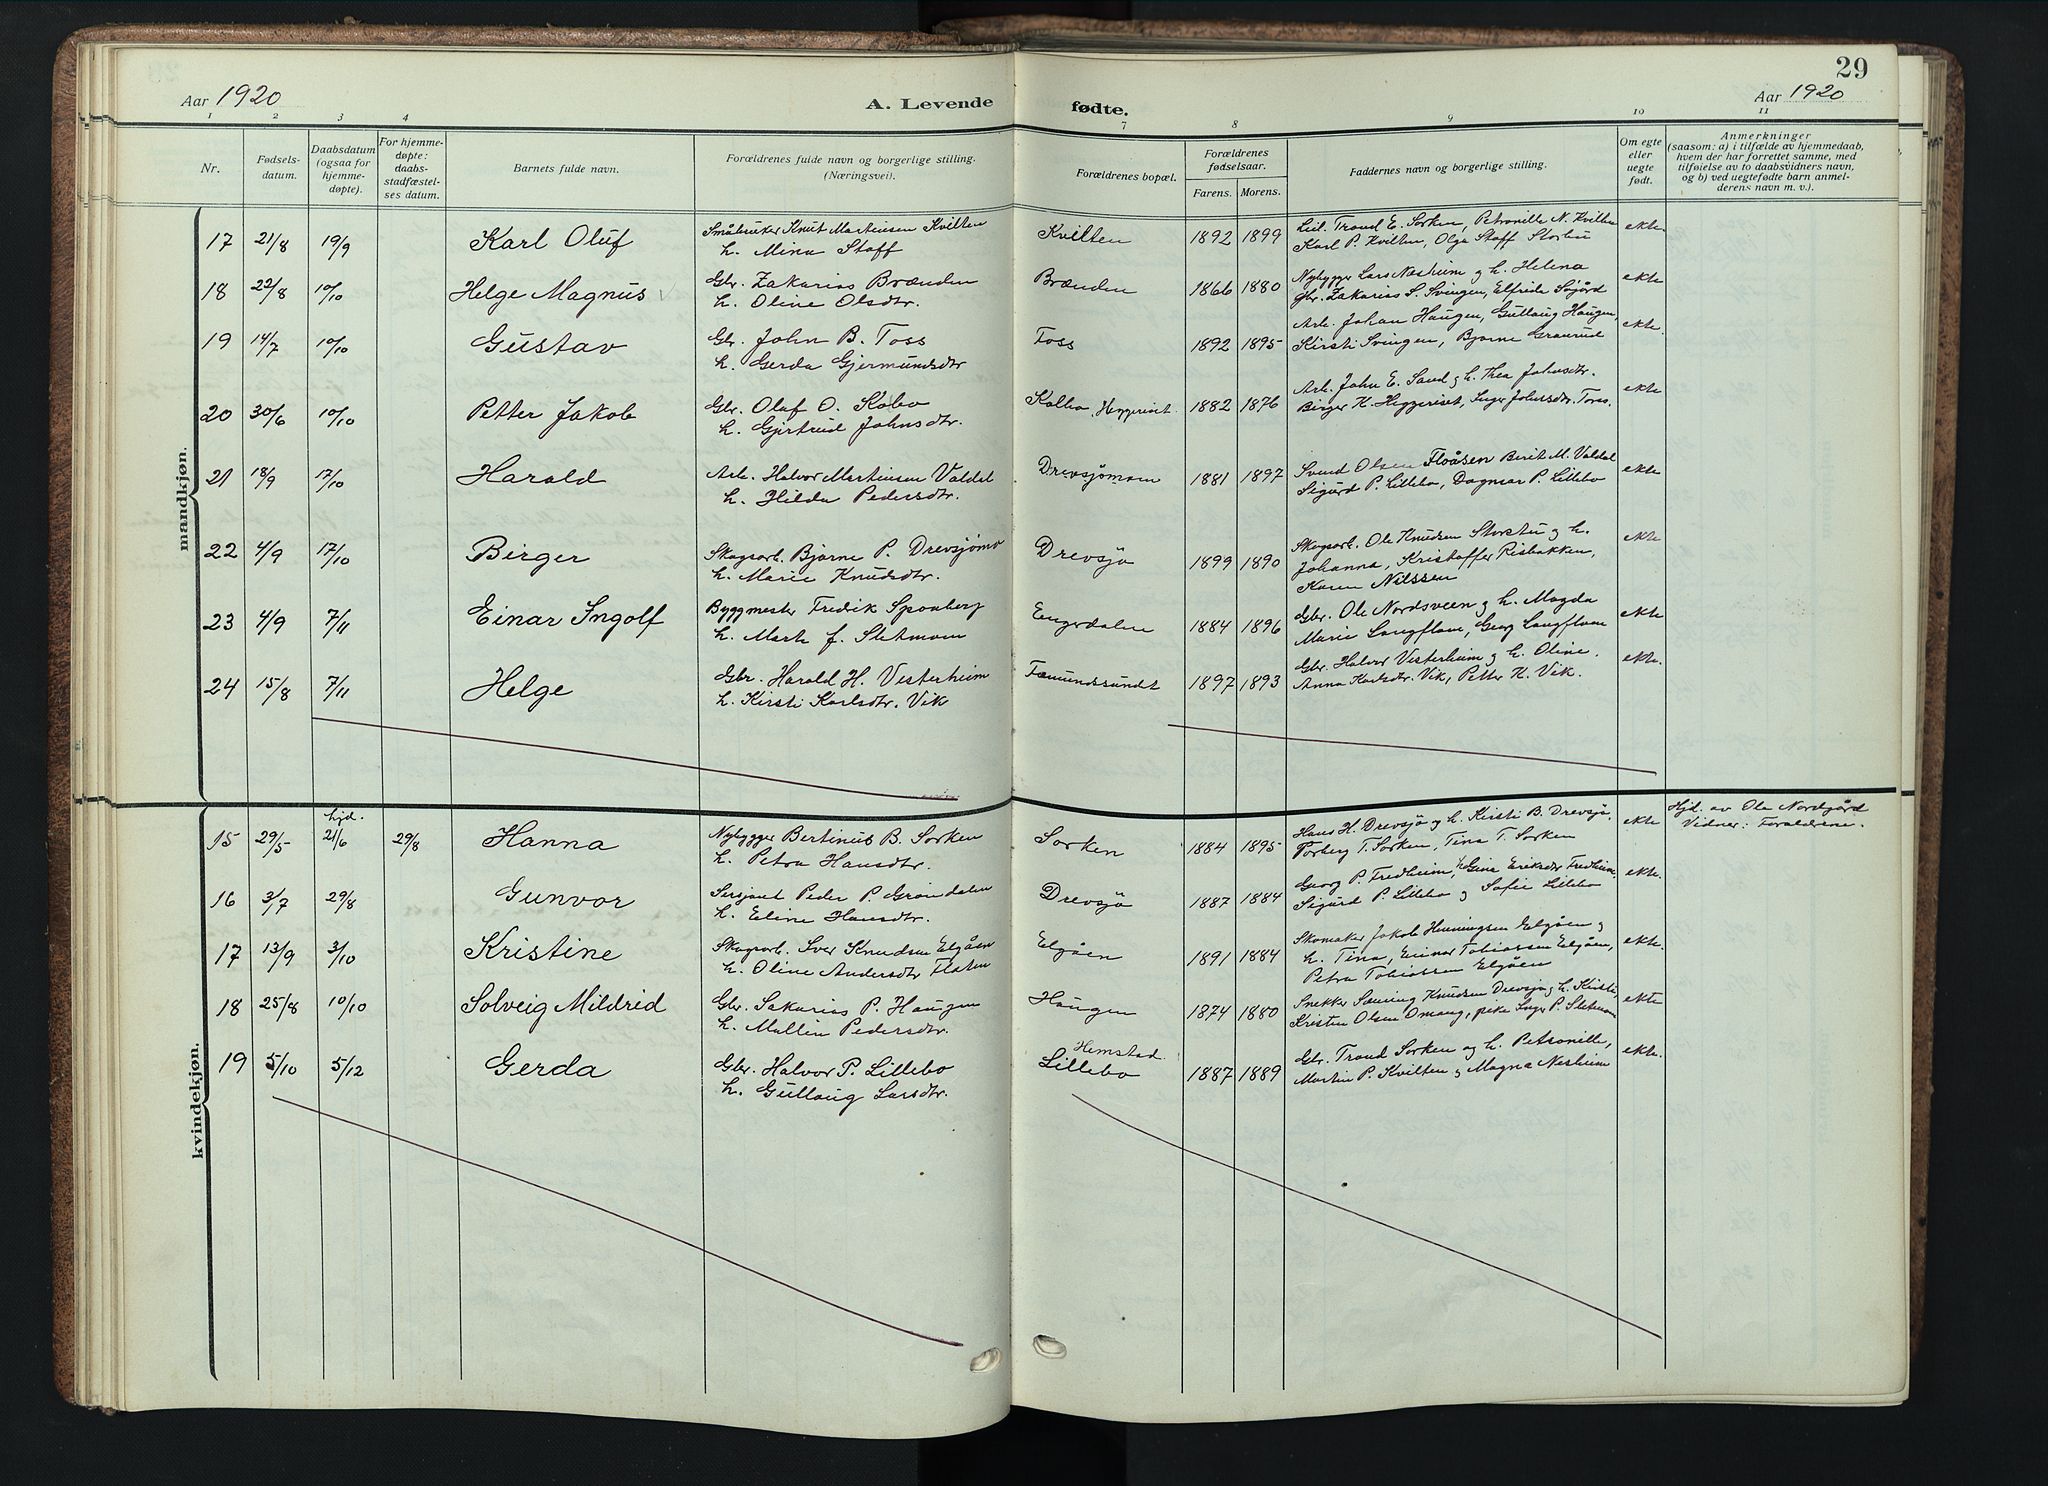 29
Aar 1920
A. Levende fødte.
Aar 1920
1 2 3 4 7 8 9 10 11
Nr.
Fødsels-
datum.
Daabsdatum
(ogsaa for
hjemme-
døpte).
For hjemme-
døpte:
daabs-
stadfæstel-
ses datum.
Barnets fulde navn.
Forældrenes fulde navn og borgerlige stilling.
(Næringsvei).
Forældrenes bopæl.
Forældrenes
fødselsaar.
Farens. Morens.
Faddernes navn og borgerlige stilling.
Om egte
eller
uegte
født.
Anmerkninger
(saasom: a) i tilfælde av hjemmedaab,
hvem der har forrettet samme, med
tilføielse av to daabsvidners navn,
og b) ved uegtefødte barn anmel-
derens navn m. v.).
mandkjøn.
17 21/8 19/9 Karl Oluf
Småbruker Knut Martinsen Kvilten
h. Mina Staff
Kvilten 1892 1899
Trond E. Sorken, Petronille N. Kvilten
Karl P. Kvilten, Olga Staff Storbu
ekte
18 22/8 10/10 Helge Magnus
Gbr. Zakarias Brænden
h. Oline Olsdtr.
Brænden 1866 1880
Nybygger Lars Nesheim og h. Helena
Gbr. Zakarias S. Svingen, Elfrida Sjgård
ekte
19 14/7 10/10 Gustav
Gbr. John B. Foss
h. Gerda Gjermundsdtr
Foss 1892 1895
Arb. Johan Haugen, Gullaug Haugen,
Kirsti Svingen, Bjarne Granrud
ekte.
20 30/6 10/10 Petter Jakob
Gbr. Olaf O. Kobo
h. Gjertrud Johnsdtr.
Kolbo, Heggeriset. 1882 1876
Arb. John E. Sand og h. Thea Johnsdtr.
Birger H. Heggeriset, Inger Johnsdtr. Foss.
ekte
21 18/9 17/10 Harald
Arb. Halvor Martinsen Valdal
h. Hilda Pedersdtr.
Drevsjømoen 1881 1897
Svend Olsen Floåsen Berit M. Valdal
Sigurd P. Lillebo, Dagmar P. Lillebo
ekte
22 4/9 17/10 Birger
Skogsarb. Bjarne P. Drevsjømo
h. Marie Knudsdtr.
Drevsjø 1899 1890
Skogsarb. Ole Knudsen Storstu og h.
Johanna, Kristoffer Risbakken,
Karen Nilssen
ekte
23 4/9 7/11 Einar Ingolf
Byggmester Fredrik Sponberg
h. Marth f. Sletmoen
Engerdalen 1884 1896
Gbr. Ole Nordsveen og h. Magda
Marie Langfloen, Georg Langfloen
ekte
24 15/8 7/11 Helge
Gbr. Harald H. Vesterheim
h. Kirsti Karlsdtr. Vik
Fæmundssundet 1897 1893
Gbr. Halvor Vesterheim og h. Oline.
Anna Karlsdtr. Vik, Petter K. Vik.
ekte.
kvindekjøn.
15 29/5 hjd. 21/6 29/8 Hanna
Nybygger Bertinus B. Sorken
h. Petra Hansdtr.
Sorken 1884 1895
Hans H. Drevsjø og h. Kirsti B. Drevsjø,
Torberg T. Sorken, Tina T. Sorken
ekte
Hjd. av Ole Nordgård
Vidner: Forældrene.
16 3/7 29/8 Gunvor
Sersjant Peder P. Grøndalen
h. Eline Hansdtr.
Drevsjø 1887 1884
Georg P. Fredheim, h. Gina Eriksdtr Fredheim,
Sigurd P. Lillebo og Sofie Lillebo
ekte.
17 13/9 3/10 Kristine
Skogsarb. Iver Knudsen Elgåen
h. Oline Andersdtr Flaten
Elgåen 1891 1884
Skomaker Jakob Henningsen Elgåen og
h. Tina, Einar Tobiassen Elgåen,
Petra Tobiassen Elgåen
ekte.
18 25/8 10/10 Solveig Mildrid
Gbr. Sakarias P. Haugen
h. Mallin Pedersdtr.
Haugen 1874 1880
Snekker Sæming Knudsen Drevsjø og h. Kirsti,
Kristen Olsen Omang, pike Inger P. Sletmoen
ekte
19 5/10 5/12 Gerda
Gbr. Halvor P. Lillebo
h. Gullaug Larsdtr.
Hemstad
Lillebo 1887 1889
Gbr. Trond Sorken og h. Petronille,
Martin P. Kvilten og Magna Nesheim
ekte.